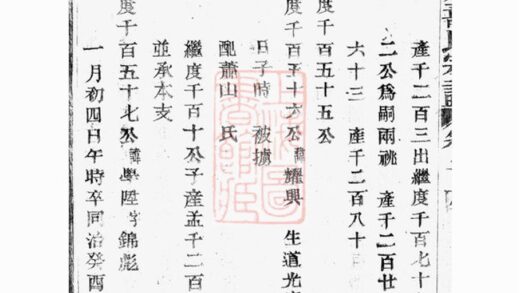 氏宗譜
產千二百三出繼度千百七十
二公爲嗣兩祧 產千二百廿
六十三 產千二百八十
度千百五十五公
度千百五十六公諱耀興 生道光
日子時被擄
配蕭山 氏
繼度千百十公子產孟千二百
並承本支
度千百五十七公諱學陞字錦彪
一月初四日午時卒同治癸酉
上海圖書館藏